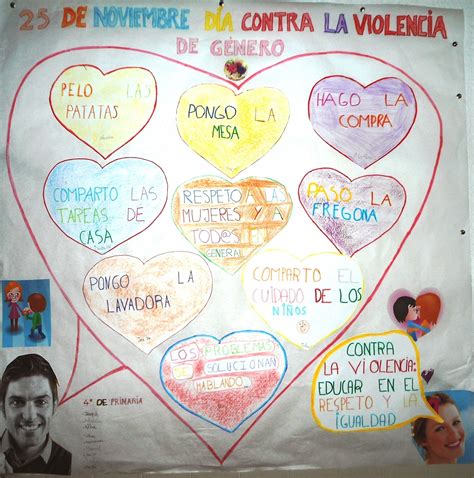 25 DE NOVIEMBRE DÍA CONTRA LA VIOLENCIA
DE GÉNERO
PELO LAS
PATATAS
PONGO LA
MESA
HAGO LA
COMPRA
COMPARTO LAS
TAREAS DE
CASA
RESPETO A LAS
MUJERES Y A
TOD@S EN
GENERAL
PASO LA
FREGONA
PONGO LA
LAVADORA
COMPARTO EL
CUIDADO DE LOS
NIÑOS
LOS PROBLEMAS
SE SOLUCIONAN
HABLANDO...
4º DE PRIMARIA
CONTRA
LA VIOLENCIA:
EDUCAR EN EL
RESPETO Y LA
IGUALDAD